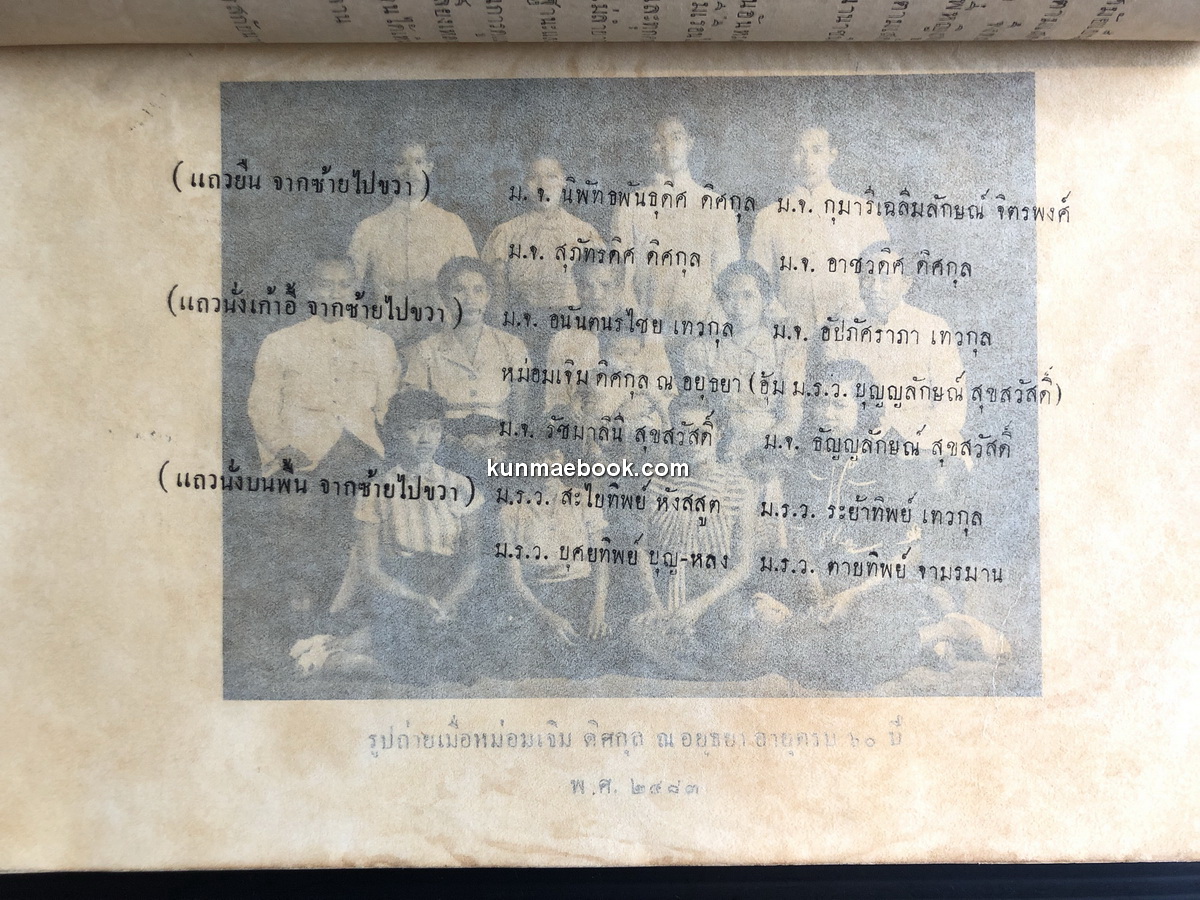 (แถวยืน จากซ้ายไปขวา) ม.จ. นิพัทธพันธุดิศ ดิศกุล ม.จ. กุมารีเฉลิมลักษณ์ จิตรพงศ์
ม.จ. สุภัทรดิศ ดิศกุล ม.จ. อาชวดิศ ดิศกุล
(แถวนั่งเก้าอี้ จากซ้ายไปขวา) ม.จ. อนันตนรไชย เทวกุล ม.จ. อัปภัศราภา เทวกุล
หม่อมเจิม ดิศกุล ณ อยุธยา (อุ้ม ม.ร.ว. บุญญลักษณ์ สุขสวัสดิ์)
ม.จ. รัชมาลินี สุขสวัสดิ์ ม.จ. ธัญญลักษณ์ สุขสวัสดิ์
kunmaebook.com
(แถวนั่งบนพื้น จากซ้ายไปขวา) ม.ร.ว. สะไบทิพย์ หังสสูต ม.ร.ว. ระย้าทิพย์ เทวกุล
ม.ร.ว. บุศยทิพย์ บุญ-หลง ม.ร.ว. ตายทิพย์ จามรมาน
รูปถ่ายเมื่อหม่อมเจิม ดิศกุล ณ อยุธยา อายุครบ ๖๐ ปี
พ.ศ. ๒๔๘๓